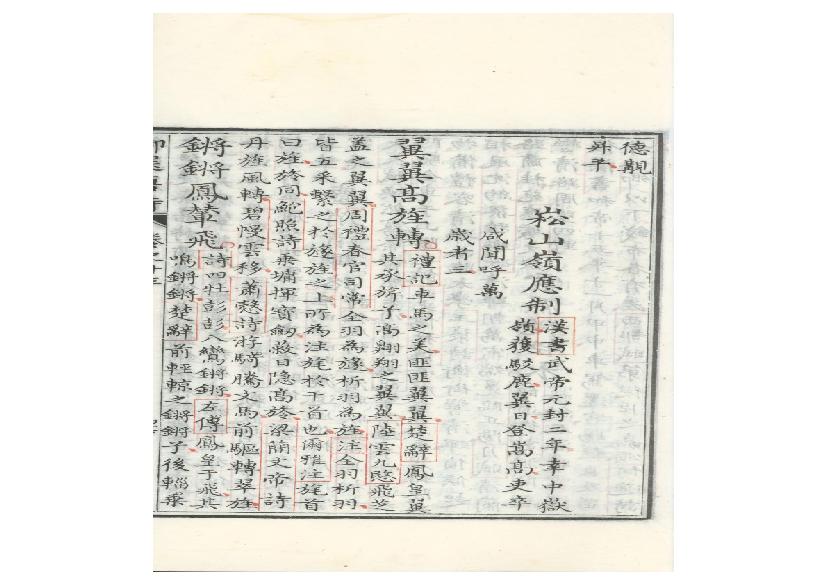 德觀
崧山嶺應制
漢書武帝元封二年幸中嶽
嶺獲駮麃翼日登嵩髙吏卒
咸聞呼萬
歲者三
翼翼髙旌轉
禮記車馬之美匪匪翼翼楚辭鳳皇翼
其承旂兮髙翺翔之翼翼陸雲九愍飛芝
葢之翼翼周禮春官司常全羽為旞析羽為旌注全羽析羽
皆五采繫之於旞旌之上所為注旄於干首也爾雅注旄首
曰旌旍同鮑照詩乘墉揮寶劒蔽日隱髙旍梁簡文帝詩
丹旌風轉碧幔雲移蕭慤詩騰文馬前驅轉翠旌
鏘鏘鳳輦飛
詩四牡彭彭八鸞鏘鏘左傳鳳皇于飛其
鳴鏘鏘楚辭前輕輬之鏘鏘兮後輜乘